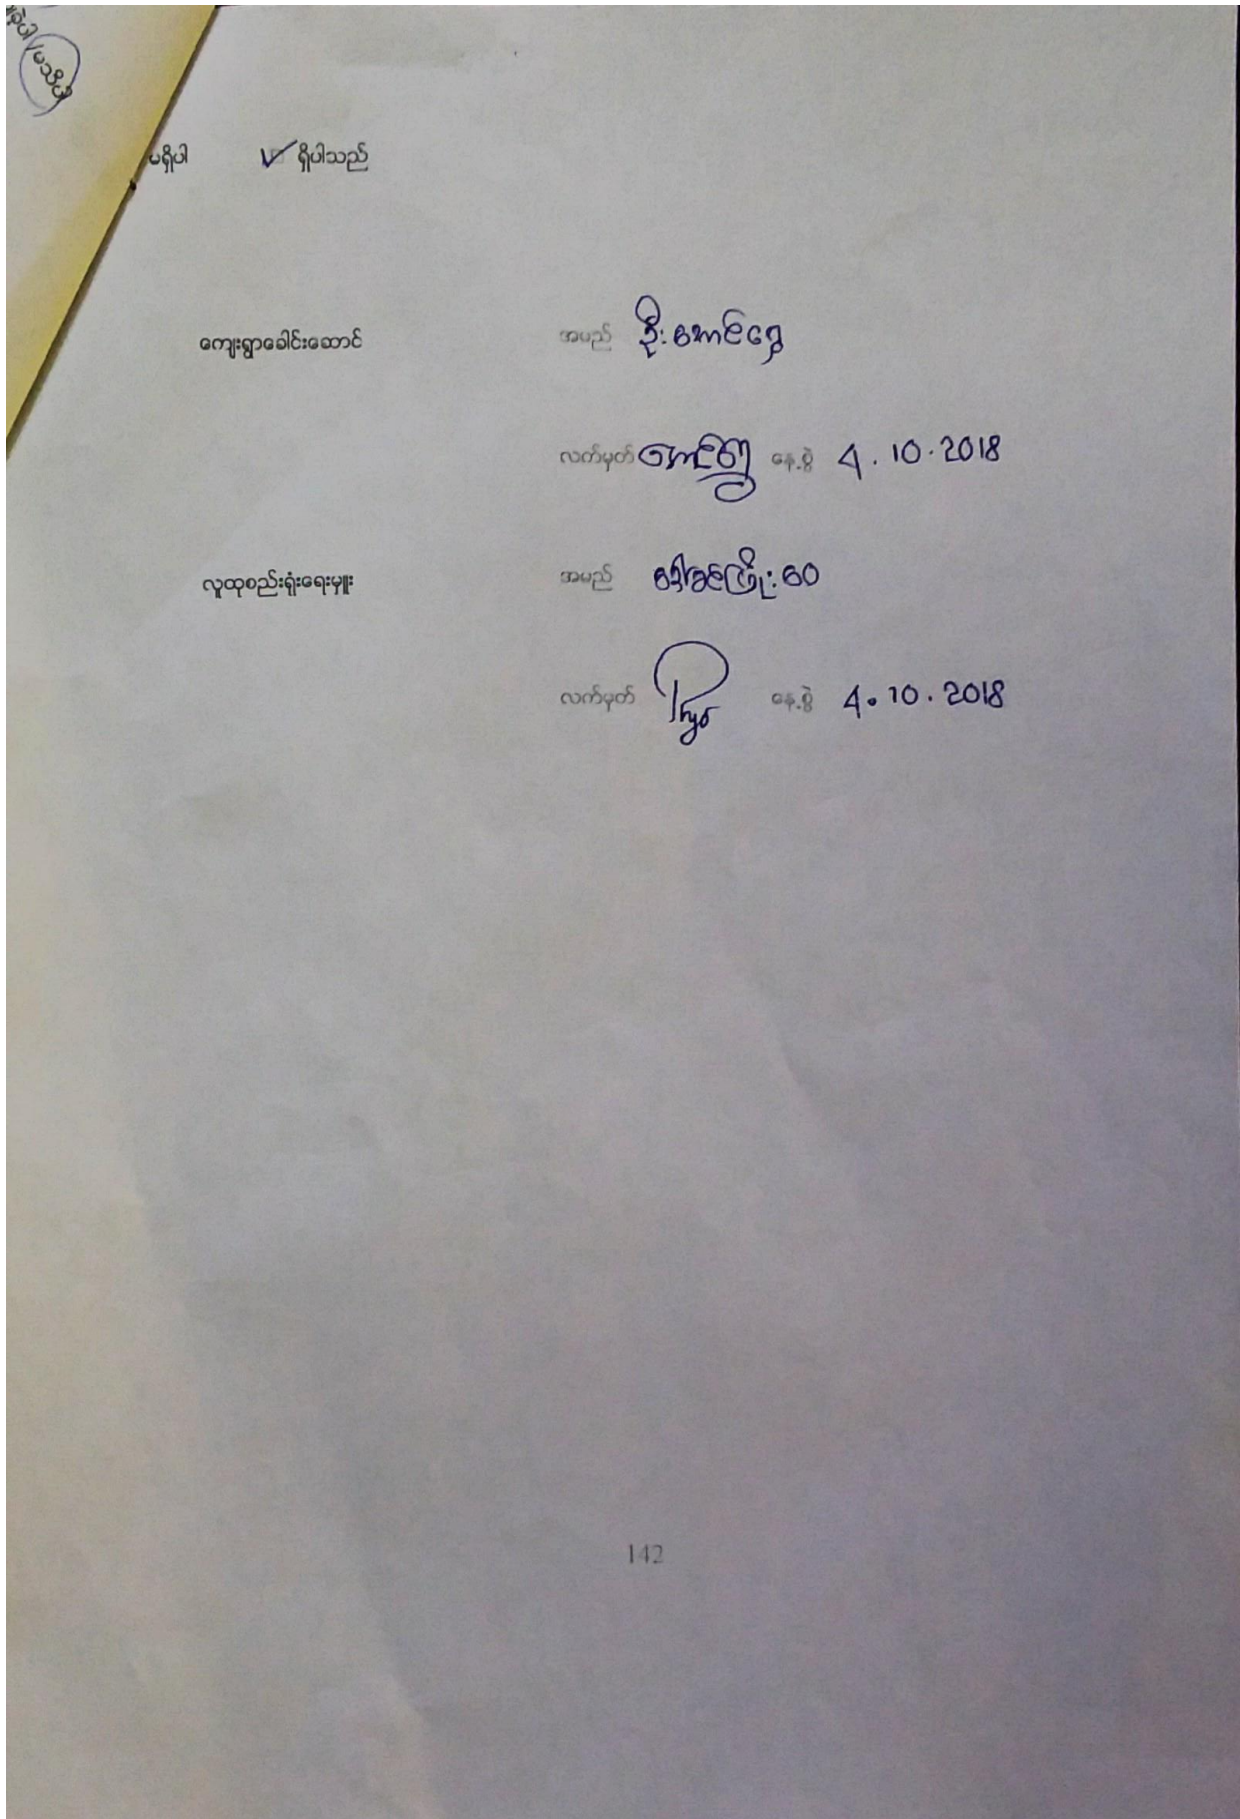 မသိပါ
မရှိပါ ရှိပါသည်
ကျေးရွာခေါင်းဆောင် အမည် ဦးအောင်ရွှေ
လက်မှတ် အောင်ရွှေ နေ့စွဲ 4.10.2018
လူထုစည်းရုံးရေးမှူး အမည် ဒေါ်ခင်ဖြိုးဝေ
လက်မှတ် နေ့စွဲ 4.10.2018
142